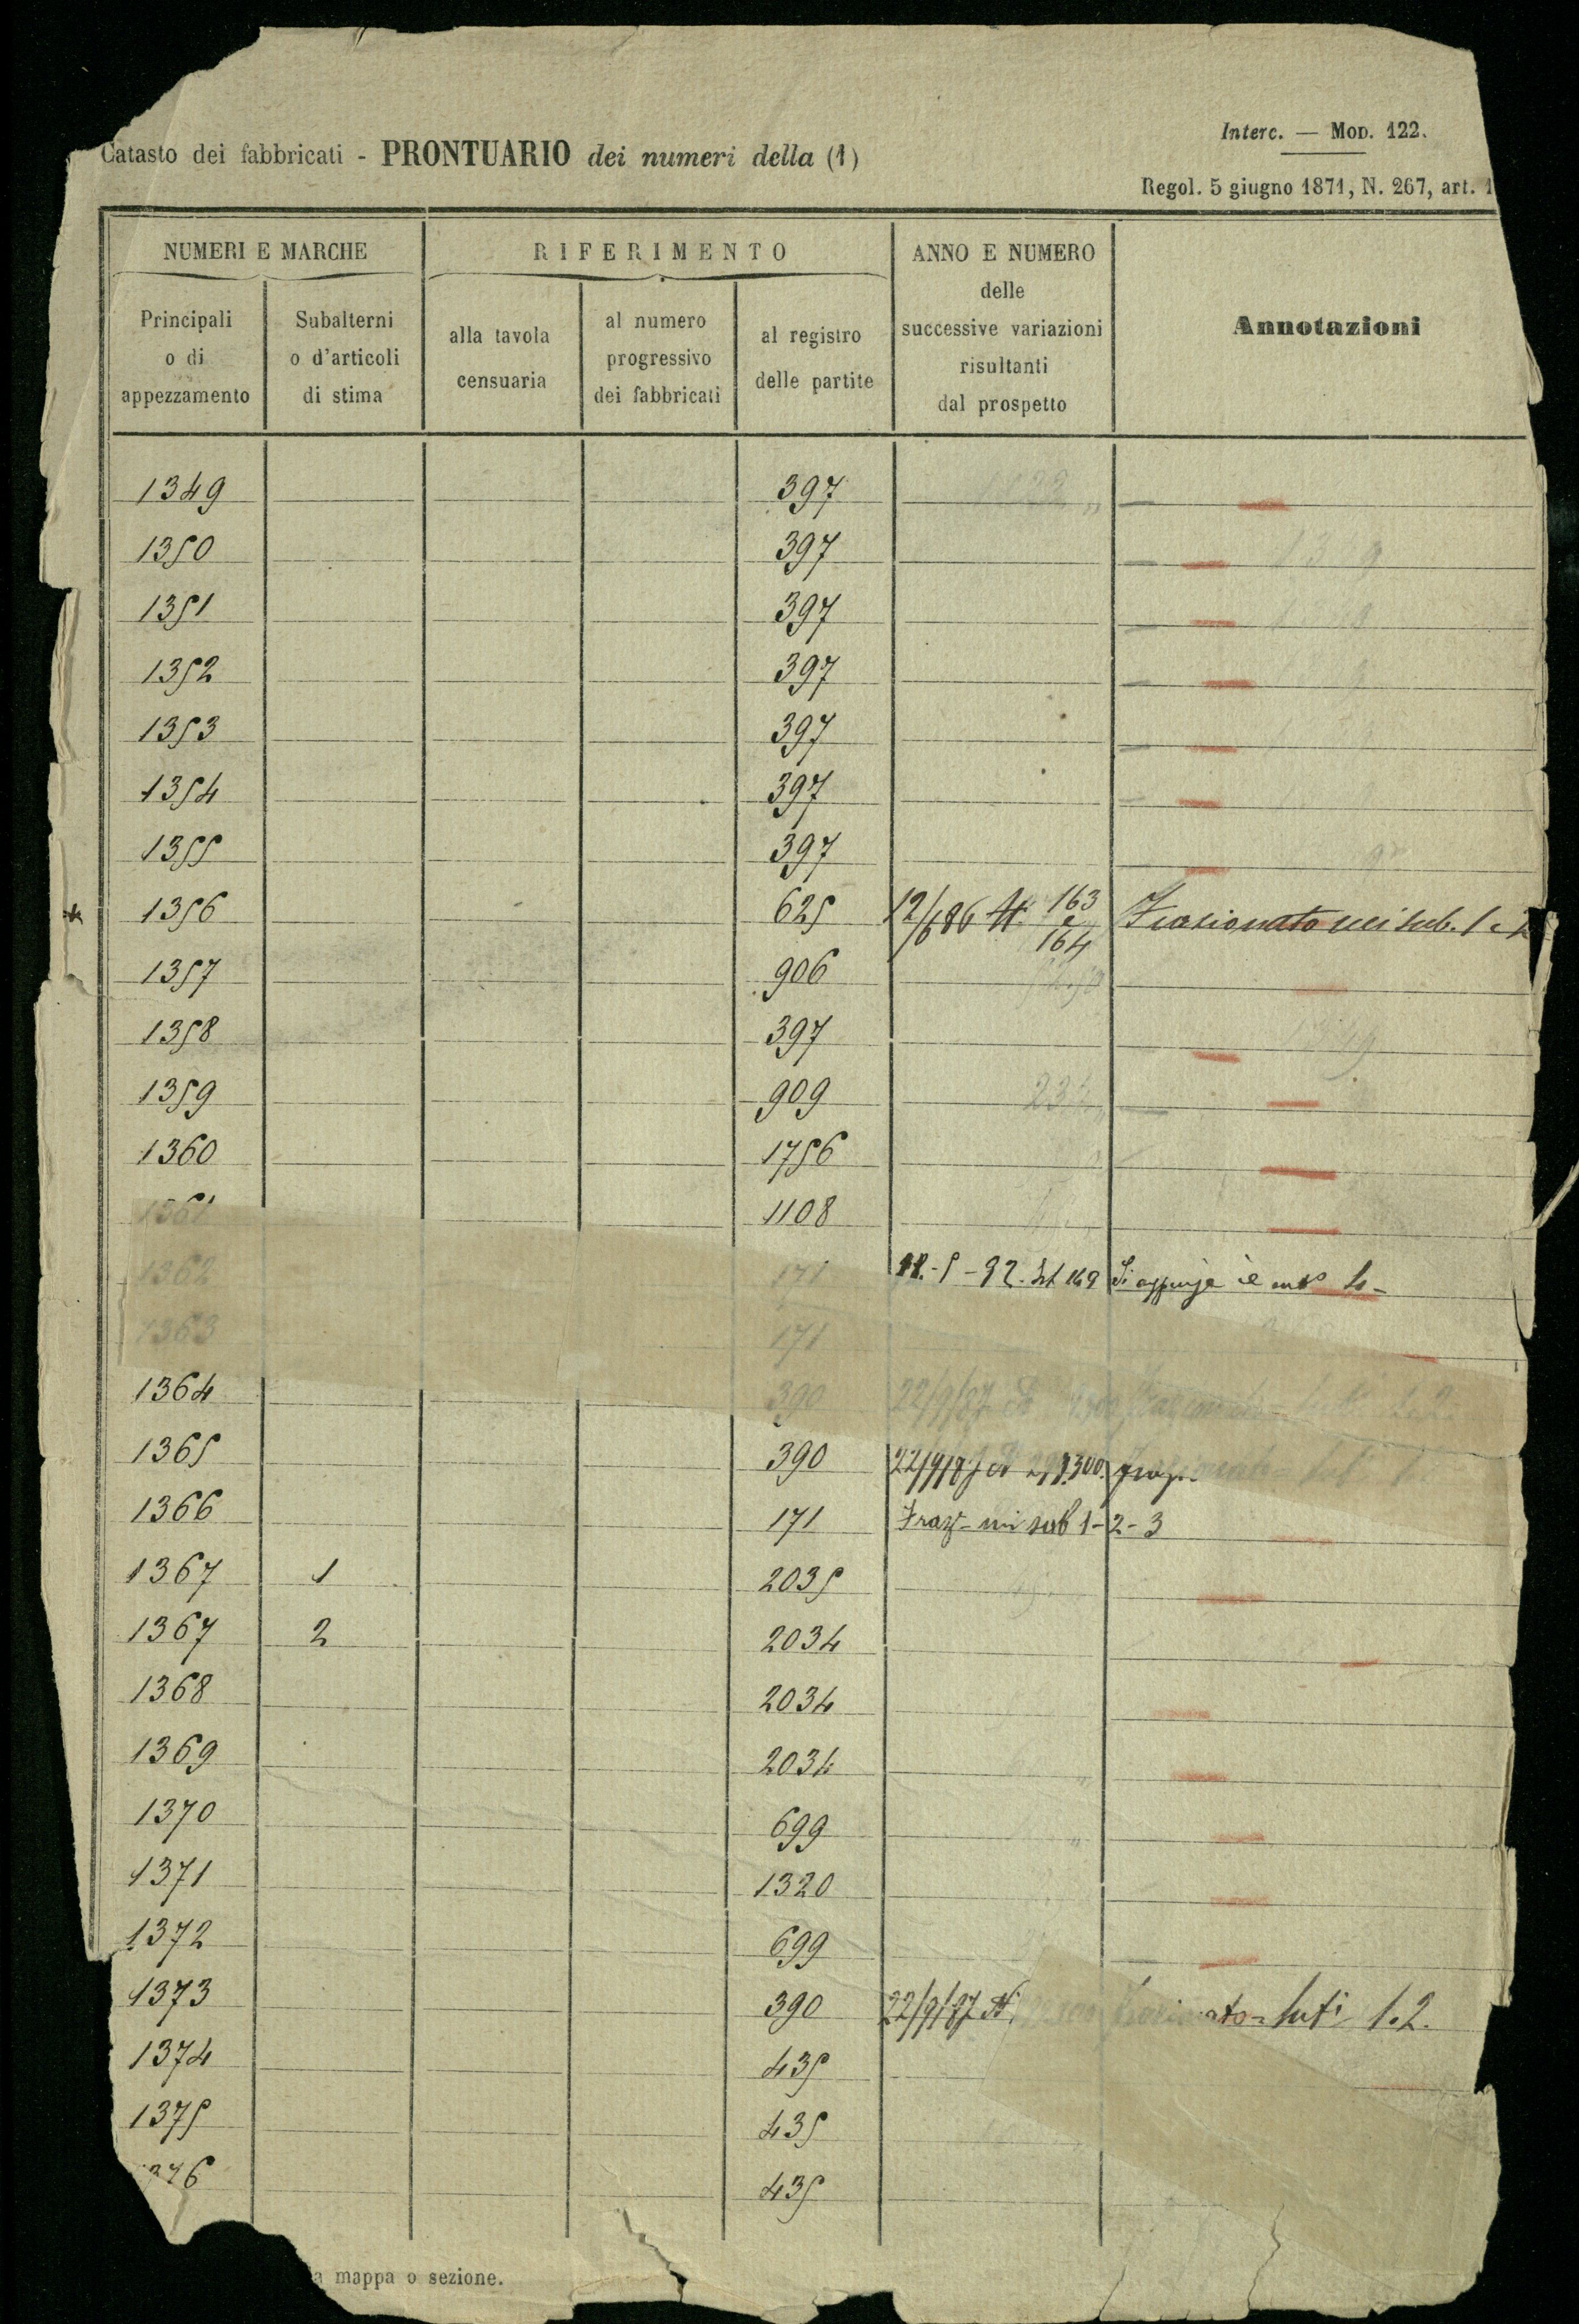 Interc. — Mod. 122.
Catasto dei fabbricati - PRONTUARIO dei numeri della (1)
Regol. 5 giugno 1871, N. 267, art. 1
NUMERI E MARCHE
RIFERIMENTO
ANNO E NUMERO
delle
successive variazioni
risultanti
dal prospetto
Annotazioni
Principali
o di
appezzamento
Subalterni
o d'articoli
di stima
alla tavola
censuaria
al numero
progressivo
dei fabbricati
al registro
delle partite
1349 397
1350 397
1351 397
1352 397
1353 397
1354 397
1355 397
1356 625 12/6 86 N. 163 e 164 Frazionato nei sub. 1 e 2
1357 906
1358 397
1359 909
1360 1756
1361 1108
1362 171
1363 171
1364 390 22/9/87 N
1365 390 22/9/87 N
1366 171 Fraz- nei sub 1-2-3
1367 1 2035
1367 2 2034
1368 2034
1369 2034
1370 699
1371 1320
1372 699
1373 390 22/9/87 N. 1.2.
1374 435
1375 435
376 435
a mappa o sezione.